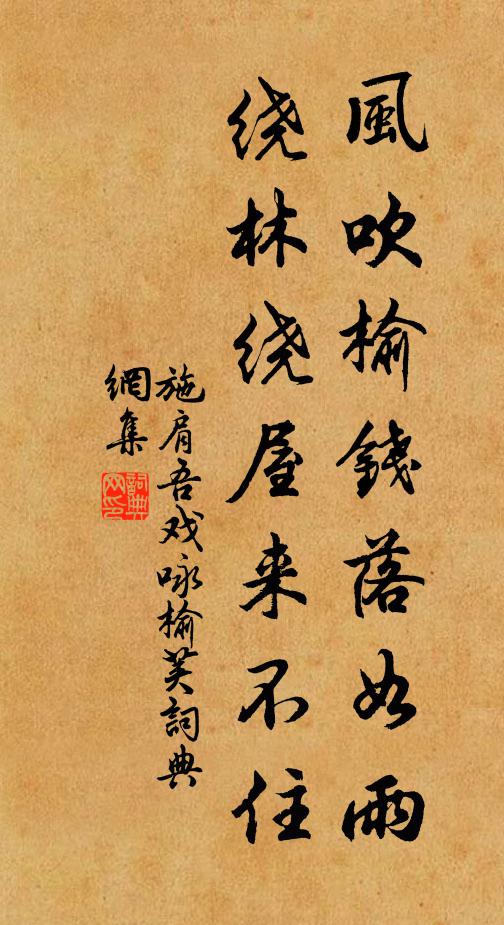 風吹榆錢落如雨
绕林绕屋来不住
施肩吾戏咏榆荚詞典
網集
詞典网印